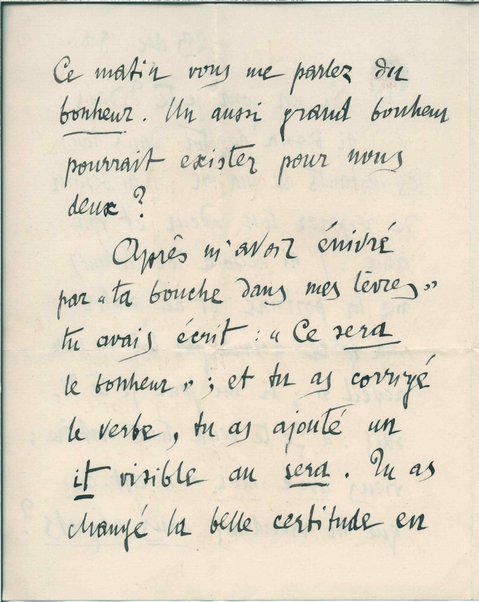 Ce matin vous me parlez du
bonheur. Un aussi grand bonheur
pourrait exister pour nous
deux ?
Après m'avoir énivré
par « ta bouche dans mes lèvres »
tu avais écrit : « Ce sera
le bonheur » ; et tu as corrigé
le verbe, tu as ajouté un
it visible au sera. Tu as
changé la belle certitude en